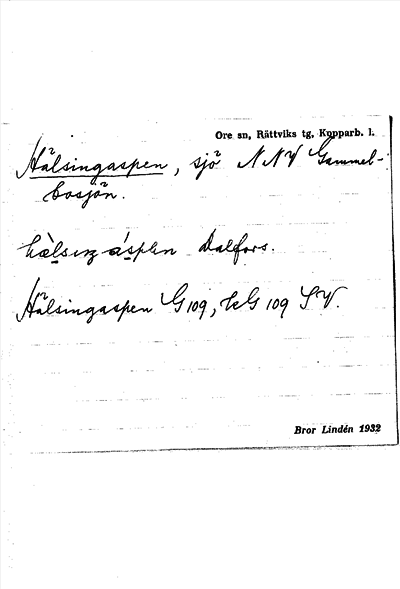 Ore sn, Rättviks tg, Kopparb. l.
Hälsingaspen, sjö NNV Gammel-
bosjön.
Dalfors.
Hälsingaspen G 109, G 109 SV.
Bror Lindén 1932